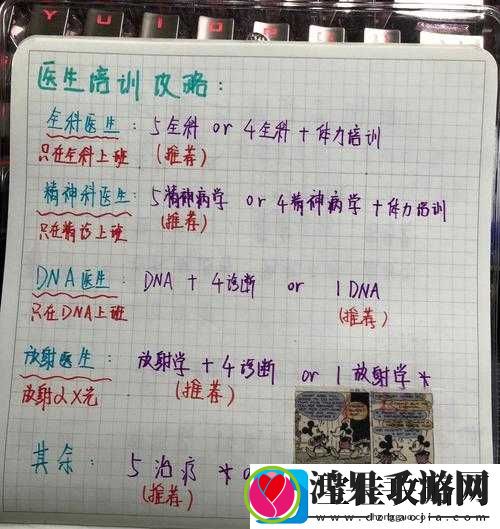 Y U I O P
医生培训攻略：
全科医生：5全科 or 4全科+体力培训
只在全科上班 (推荐)
精神科医生：5精神病学 or 4精神病学+体力培训
只在精诊上班 (推荐)
DNA医生：DNA + 4诊断 or 1DNA
只在DNA上班 (推荐)
放射医生：放射学+4诊断 or 1放射学*
放射及X光 (推荐)
其余：5治疗*
(推荐)
鸿雅攻略网
www.dzbaojia.com